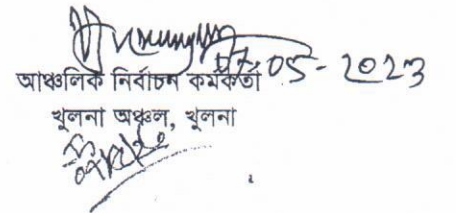 07-05-2023
আঞ্চলিক নির্বাচন কর্মকর্তা
খুলনা অঞ্চল, খুলনা